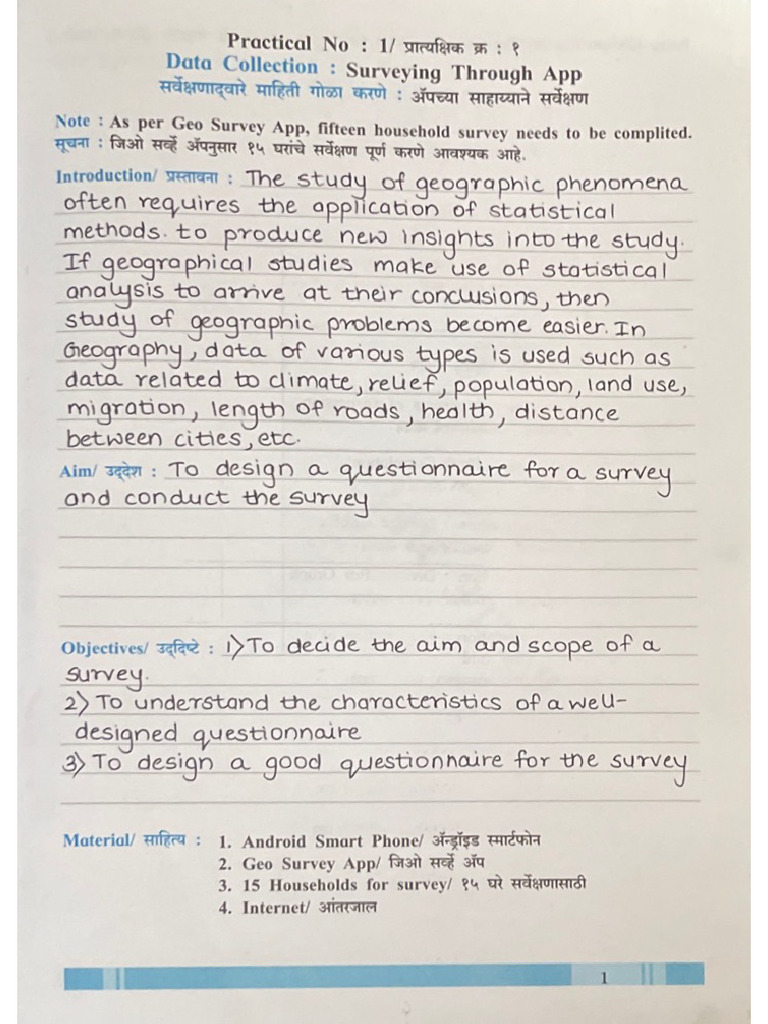 Practical No : 1/ प्रात्यक्षिक क्र : १
Data Collection : Surveying Through App
सर्वेक्षणाद्वारे माहिती गोळा करणे : ॲपच्या साहाय्याने सर्वेक्षण
Note : As per Geo Survey App, fifteen household survey needs to be complited.
सूचना : जिओ सर्व्हे ॲपनुसार १५ घरांचे सर्वेक्षण पूर्ण करणे आवश्यक आहे.
Introduction/ प्रस्तावना : The study of geographic phenomena
often requires the application of statistical
methods. to produce new insights into the study.
If geographical studies make use of statistical
analysis to arrive at their conclusions, then
study of geographic problems become easier. In
Geography, data of various types is used such as
data related to climate, relief, population, land use,
migration, length of roads, health, distance
between cities, etc.
Aim/ उद्देश : To design a questionnaire for a survey
and conduct the survey
Objectives/ उद्दिष्टे : 1) To decide the aim and scope of a
survey.
2) To understand the characteristics of a well-
designed questionnaire
3) To design a good questionnaire for the survey
Material/ साहित्य : 1. Android Smart Phone/ ॲन्ड्रॉइड स्मार्टफोन
2. Geo Survey App/ जिओ सर्व्हे ॲप
3. 15 Households for survey/ १५ घरे सर्वेक्षणासाठी
4. Internet/ आंतरजाल
1